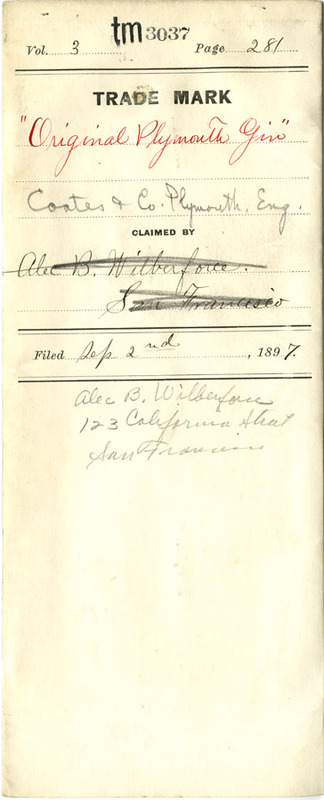 tm 3037
Vol. 3 Page 281
TRADE MARK
"Original Plymouth Gin"
Coates & Co. Plymouth, Eng.
CLAIMED BY
Alec B. Wilberforce.
San Francisco
Filed Sep 2nd, 1897.
Alec B. Wilberforce
123 California Street
San Francisco